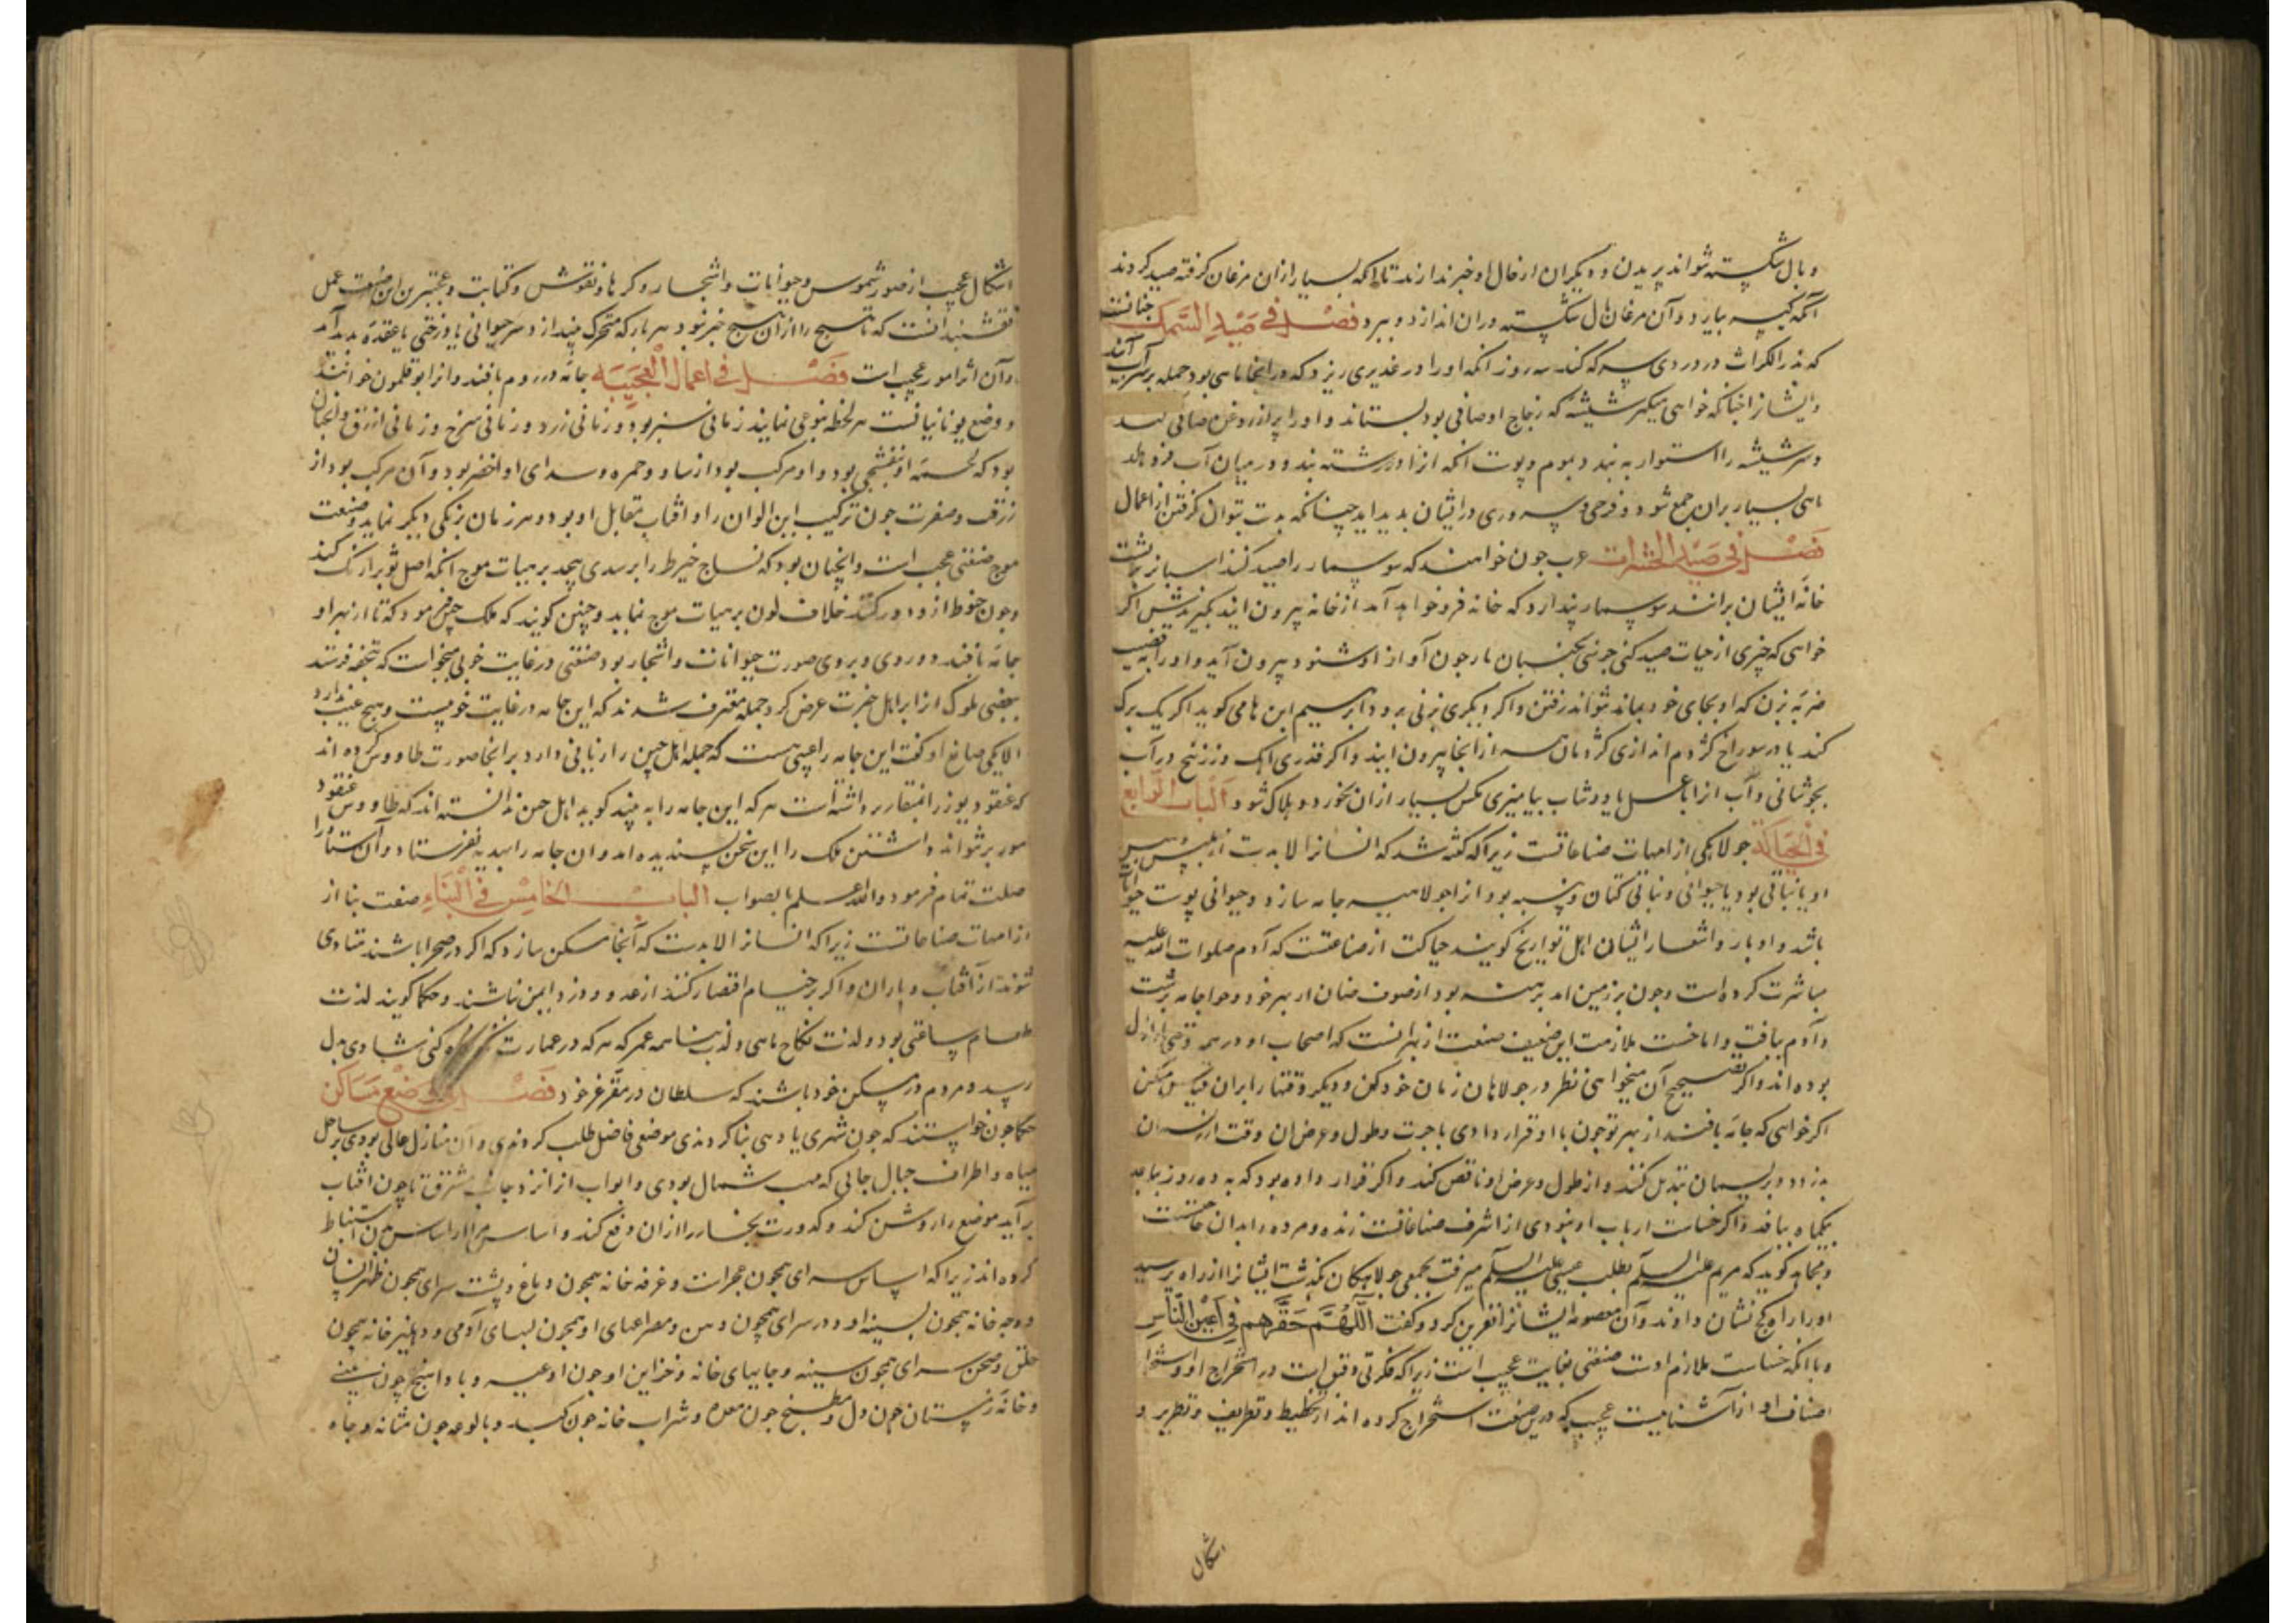 و بال شکسته نتواند پریدن و دیگران از حال او خبر ندارند تا آنکه بسیار ازان مرغان گرفته صید کردند
آنگه کیسه بیارد و آن مرغان بال شکسته دران اندازد و ببرد فصل فی صید السمک چنانست
که در دی سه که کند سه روز انکه او را در غدیری ریزد که در انجا ماهی بود جمله بر سر آب آیند
و ایشانرا چنانکه خواهی بگیر شیشه که زجاج او صافی بود بستاند و او را پر از روغن صافی کند
و سر شیشه را استوار به بندد بموم و پوست انکه ازا در رشته بندد و در میان آب فرو هلد
ماهی بسیار بران جمع شود و فرحی و سروری در ایشان بدید اید چنانکه بدست بتوان گرفتن از اعمال
فصل فی صید الحشرات عرب چون خواهند که سوسمار را صید کنند اسبانرا بر پشت
خانه ایشان برانند سوسمار پندارد که خانه فرو خواهد آمد از خانه بیرون ایند بگیرندش اگر
خواهی که چیزی از حیات صید کنی جرسی بجنبان مار چون آواز او شنود بیرون آید و او را به قضیب
ضربه بزن که او بجای خود بماند نتواند رفتن و اگر دیگری بزنی برود ابرسیم این ها می کوید اکر یک برک
کند یا در سوراخ کژدم اندازی کژدمان همه از انجا بیرون ایند و اکر قدری آهک و زرنیخ در آب
بجوشانی و آب انرا با عسل یا دوشاب بیامیزی مکس بسیار ازان بخورد و هلاک شود الباب الرابع
فی الحیاکة جولاهکی از امهات صناعاتست زیرا که کفته شد که انسانرا لا بدست از ملبس پس
او یا نباتی بود یا حیوانی و نباتی کتان و پنبه بود ازا جولاهه جامه سازد و حیوانی پوست حیوانات
باشد و اوبار و اشعار ایشان اهل تواریخ کویند حیاکت از صناعتست که آدم صلوات الله علیه
مباشرت کرده است و چون بر زمین امد برهنه بود از صوف ضان از بهر خود و حوا جامه برشت
و آدم ببافت و اما خست ملازمت این ضعیف صنعت از بهر انست که اصحاب او در همه وقتی اراذل
بوده اند و اکر تصحیح آن میخواهی نظر در جولاهان زمان خود کن و دیگر وقتها را بران قیاس کن
اکر خواهی که جامه بافند از بهر تو چون با او قرار دادی باجرت و طول و عرض ان وقت از ریسمان
بدزدد و ریسمان تبدیل کنند و از طول و عرض او ناقص کند و اکر قرار داده بود که به ده روز بباید
بیکماه ببافد و اکر خساست ارباب او نبودی از اشرف صناعاتست زنده و مرده را بدان حاجتست
و مجاهد کوید که مریم علیه السلم بطلب عیسی علیه السلم میرفت بجمعی جولاهکان بگذشت ایشانرا از راه پرسید
او را راه کج نشان دادند و آن معصومه ایشانرا نفرین کرد و گفت اللهم حقرهم فی اعین الناس
و با انکه خساست ملازم اوست صنعتی بغایت عجیب است زیرا که فکرتی دقیق است در استخراج او و استخراج
اصناف او از آشنا بیست عجیب که درین صنعت استخراج کرده اند از تخطیط و تطریف و تطریز و
اشکال
اشکال عجیب از صور شموس و حیوانات و اشجار و کرها و نقوش و کتابت و عجبترین این صنعت عمل
نقشبند انست که نساج را ازان هیچ خبر نبود هر بار که متحرک بیندازد سر حیوانی یا ورقی یا عقده بدید آمد
و آن از امور عجیب است فصل فی اعمال العجیبه جامه در روم بافند و انرا بو قلمون خوانند
و وضع یونانیانست هر لحظه بنوعی نماید زمانی سبز بود و زمانی زرد و زمانی سرخ و زمانی ازرق و انچنان
بود که لحمه او بنفشجی بود و او مرکب بود از سواد و حمره و سدای او اخضر بود و آن مرکب بود از
زرقت و صفرت چون ترکیب این الوان را و آفتاب مقابل او بود هر زمان برنکی دیکر نماید و صنعت
موج صنعتی عجب است و انچنان بود که نساج خیرط را بر سدی پیچد بر هیات موج انکه اصل ثوب را رنک کند
و چون خیوط از و دور کنند خلاف لون بر هیات موج نماید و چنین کویند که ملک چین فرمود که تا از بهر او
جامه بافند و در وی صورت حیوانات و اشجار بود صنعتی در غایت خوبی میخواست که تحفه فرستد
ببعضی ملوک انرا بر اهل خبرت عرض کرد جمله معترف شدند که این جامه در غایت خوبیست و هیچ عیب ندارد
الا یکی صانع او کفت این جامه را عیبی هست که جمله اهل چین را از زیانی دارد بر انجا صورت طاووس کرده اند
که عنقود موز را بمنقار برداشته است هر که این جامه را به بیند کوید اهل چین ندانسته اند که طاووس عنقود
موز بر نتواند داشتن ملک را این سخن پسندیده امد و ان جامه را بهدیه نفرستاد و آن استاد را
صلت تمام فرمود والله اعلم بالصواب الباب الخامس فی البناء صنعت بنا از
از امهات صناعاتست زیرا که انسانرا لا بدست که آنجا مسکن سازد که اکر در صحرا باشند متاذی
شوند از آفتاب و باران و اکر بر خیام اقتصار کنند از عدو و دزد ایمن نباشند و حکما کویند لذت
طعام ساعتی بود و لذت نکاح ماهی و لذت بنا همه عمر که هر که در عمارت نکاه کنی شادی بدل
رسد و مردم در مسکن خود باشند که سلطان در مقر عز خود فصل فی وضع مساکن
حکما چون خواستند که چون شهری یا دهی بنا کردندی موضعی فاضل طلب کردندی و آن منازل عالی بودی بر ساحل
میاه و اطراف جبال جایی که مهب شمال بودی و ابواب انرا از جانب مشرق تا چون افتاب
برآید موضع را روشن کند و کدورت بخار را ازان دفع کند و اساس سرا از اساس تن استنباط
کرده اند زیرا که اساس سرای همچون حجرات و غرفه خانه همچون دماغ و پشت سرای همچون ظهر انسان
و وجه خانه همچون سینه او و در سرای همچون دهن و مصراعهای او همچون لبهای آدمی و دهلیز خانه همچون
حلق و صحن سرای همچون سینه و جایهای خانه و خزاین او چون اوعیه و بادهنج چون بینی
و خانه زمستان چون دل و مطبخ چون معده و شراب خانه چون کبد و بالوعه چون مثانه و چاه